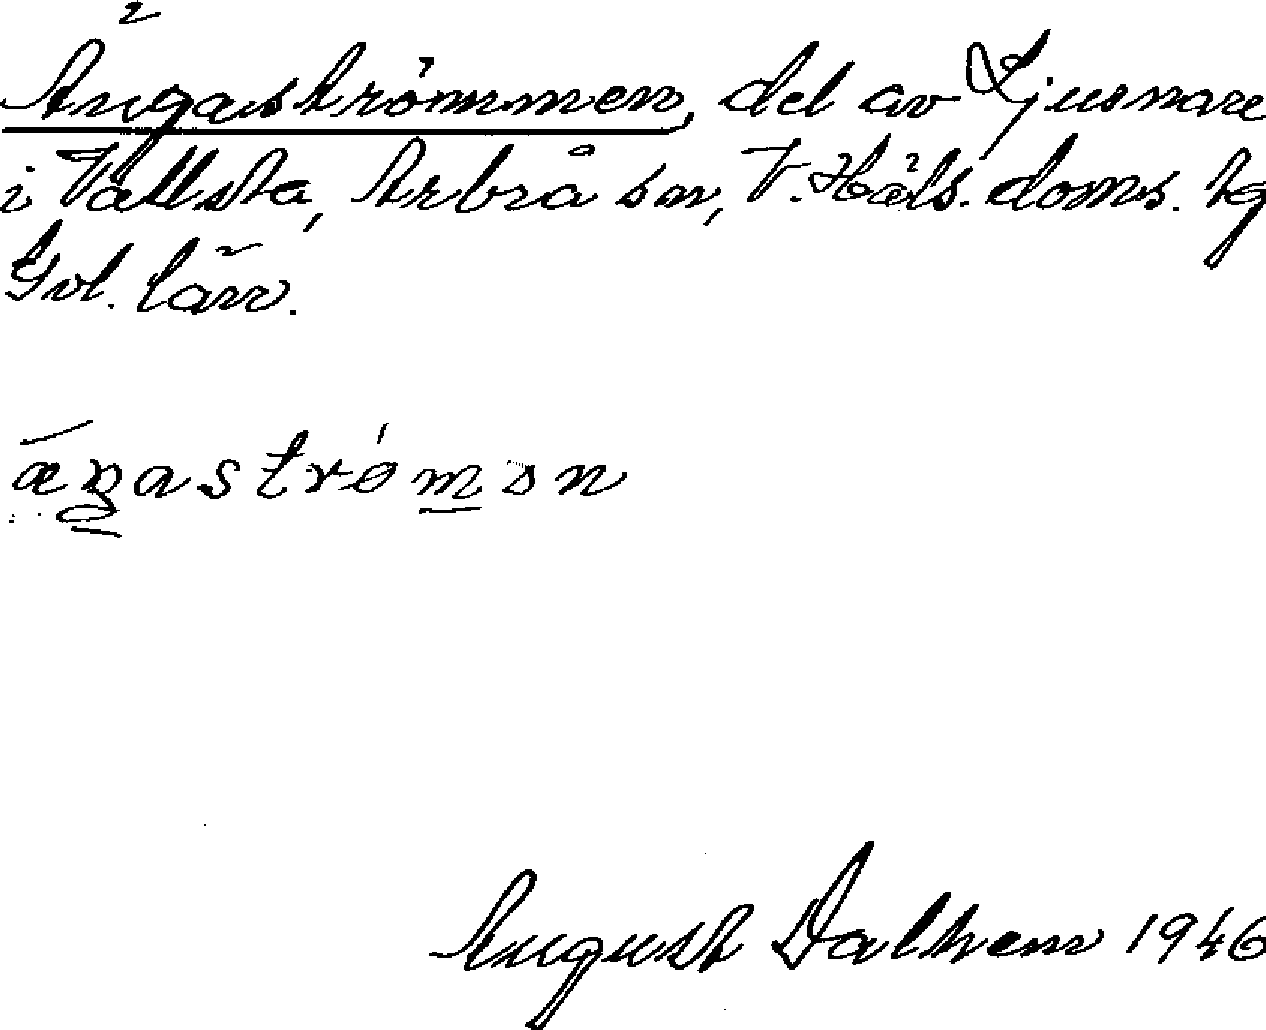 Ängaströmmen, del av Ljusnare
i Vallsta, Arbrå sn, V. Häls. doms. tg
Gvl. län.
strömən
August Dalhem 1946